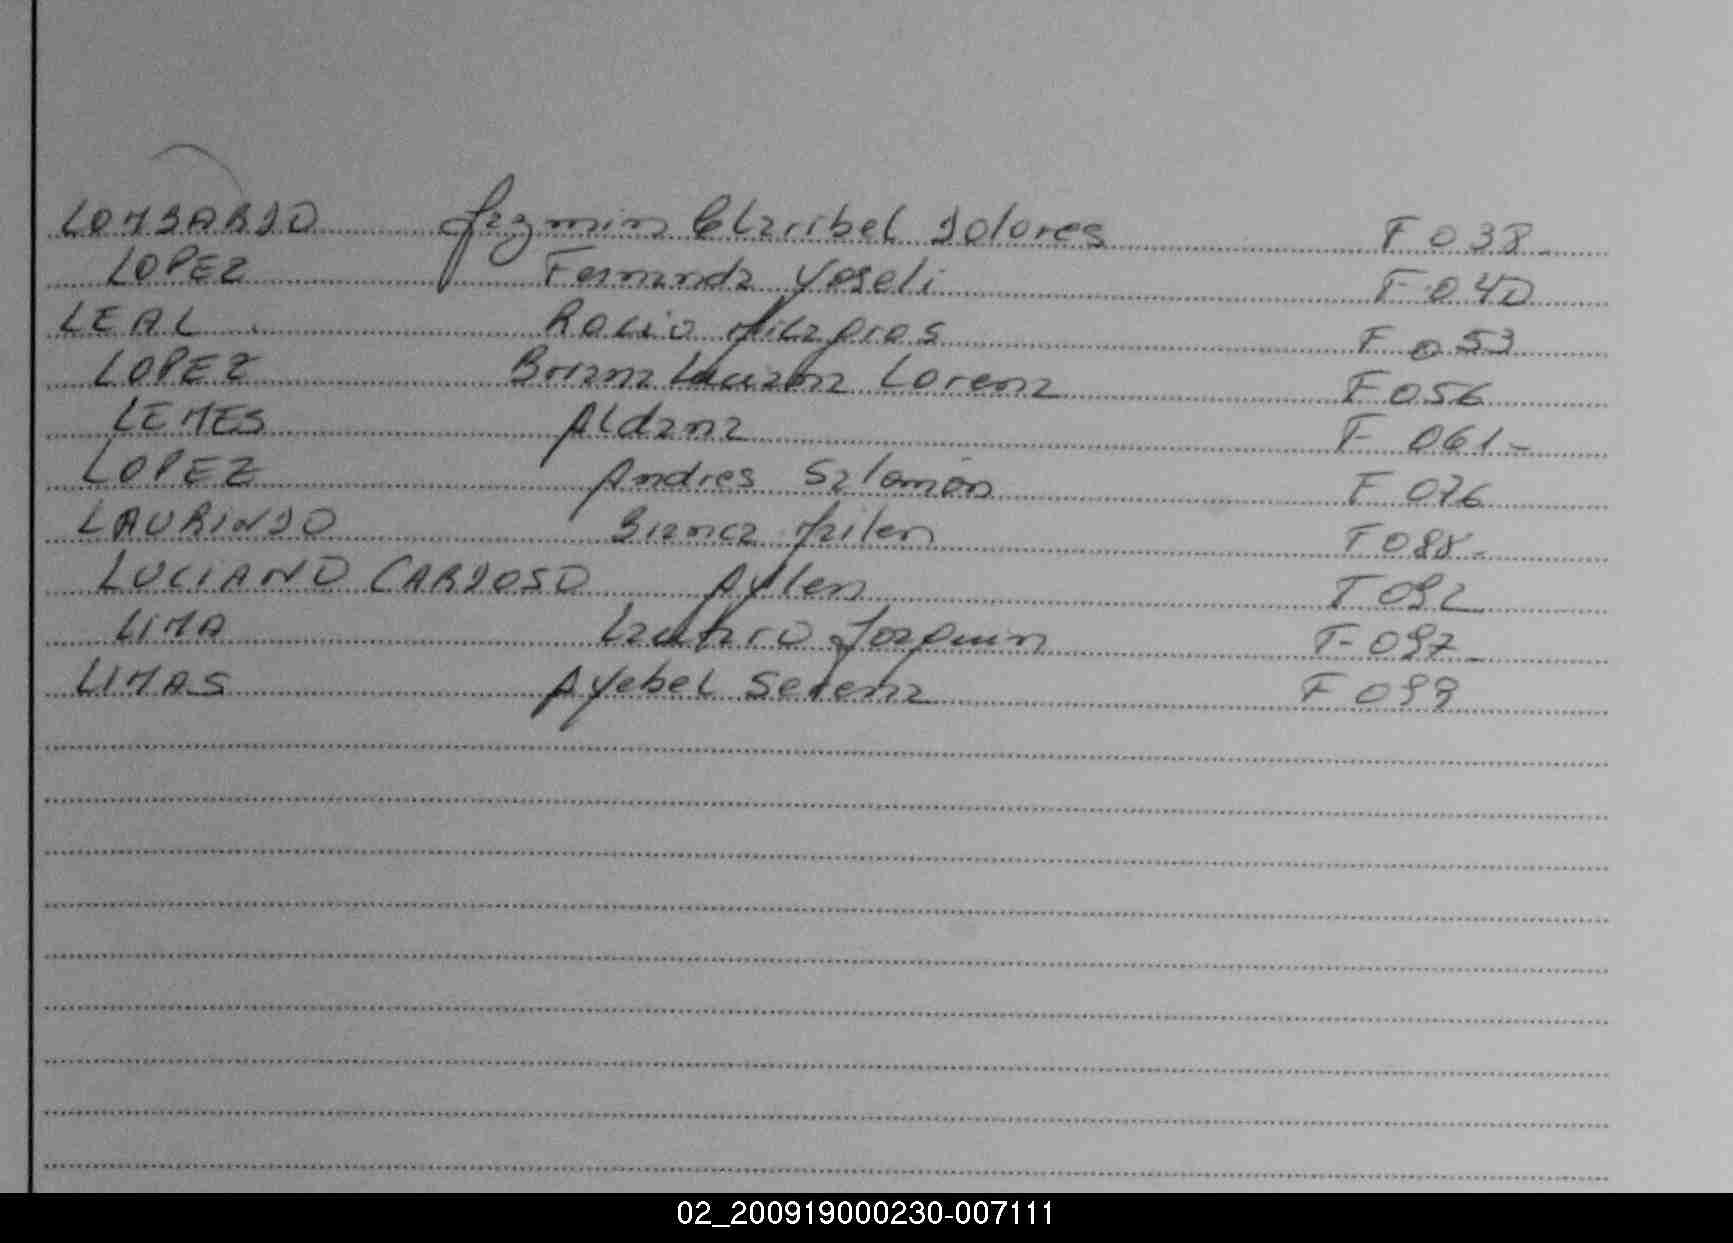 LOMBARDO Jazmin Claribel Dolores F 038-
LOPEZ Fernanda Yoseli F 040
LEAL Rocio Milagros F 053
LOPEZ Briana Lorena F 056
LEMES Aldana F- 061-
LOPEZ Andres Salomón F 076
LAURINDO Bianca Mailen F 088-
LUCIANO CARDOSO Aylen F 092
LIMA Lautaro Joaquin F- 097-
LIMAS Ayebel Serena F 099
02_200919000230-007111